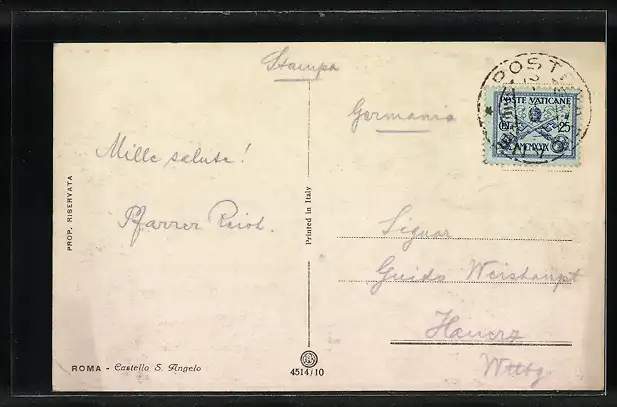 Stampa
Germania
POSTE
POSTE VATICANE
25
Mille salute!
Pfarrer
PROP. RISERVATA
Printed in Italy
Signor
Guido Weishaupt
Hauerz
Wttbg
ROMA - Castello S. Angelo
4514/10